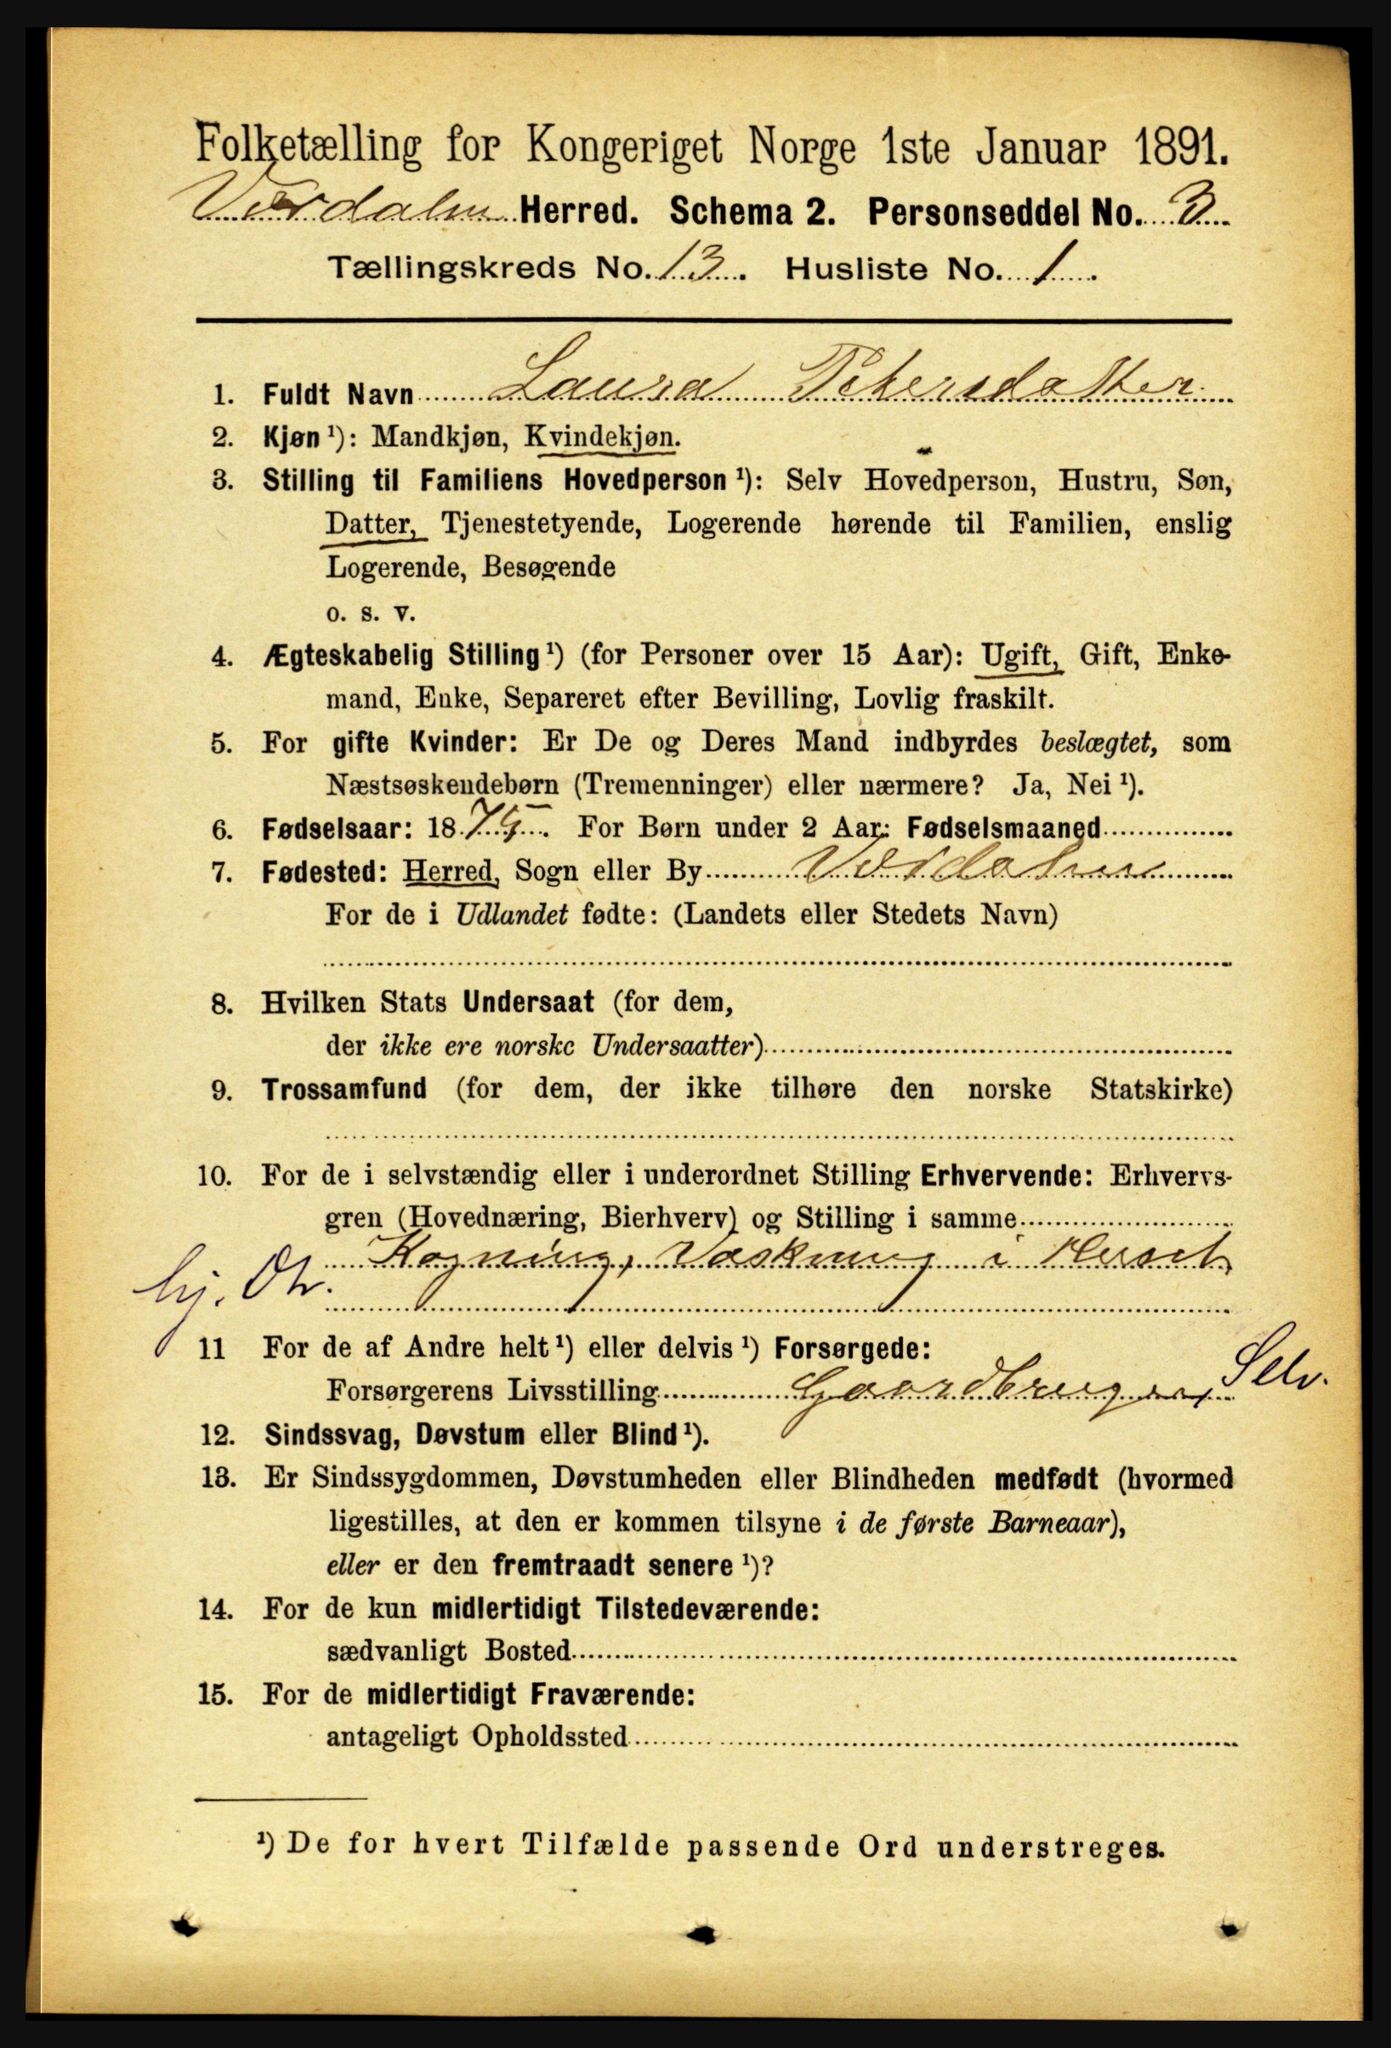 Folketælling for Kongeriget Norge 1ste Januar 1891.
Værdalen Herred. Schema 2. Personseddel No. 3
Tællingskreds No. 13. Husliste No. 1.
1. Fuldt Navn Laura Petersdatter
2. Kjøn ¹): Mandkjøn, Kvindekjøn.
3. Stilling til Familiens Hovedperson ¹): Selv Hovedperson, Hustru, Søn,
Datter, Tjenestetyende, Logerende hørende til Familien, enslig
Logerende, Besøgende
o. s. v.
4. Ægteskabelig Stilling ¹) (for Personer over 15 Aar): Ugift, Gift, Enke-
mand, Enke, Separeret efter Bevilling, Lovlig fraskilt.
5. For gifte Kvinder: Er De og Deres Mand indbyrdes beslægtet, som
Næstsøskendebørn (Tremenninger) eller nærmere? Ja, Nei ¹).
6. Fødselsaar: 1875. For Børn under 2 Aar: Fødselsmaaned
7. Fødested: Herred, Sogn eller By Værdalen
For de i Udlandet fødte: (Landets eller Stedets Navn)
8. Hvilken Stats Undersaat (for dem,
der ikke ere norske Undersaatter)
9. Trossamfund (for dem, der ikke tilhøre den norske Statskirke)
10. For de i selvstændig eller i underordnet Stilling Erhvervende: Erhvervs-
gren (Hovednæring, Bierhverv) og Stilling i samme
Kogning, Vaskning i Huset
hj. Dtr.
11 For de af Andre helt ¹) eller delvis ¹) Forsørgede:
Forsørgerens Livsstilling Gaardbruger, Selv.
12. Sindssvag, Døvstum eller Blind ¹).
13. Er Sindssygdommen, Døvstumheden eller Blindheden medfødt (hvormed
ligestilles, at den er kommen tilsyne i de første Barneaar),
eller er den fremtraadt senere ¹)?
14. For de kun midlertidigt Tilstedeværende:
sædvanligt Bosted
15. For de midlertidigt Fraværende:
antageligt Opholdssted
¹) De for hvert Tilfælde passende Ord understreges.